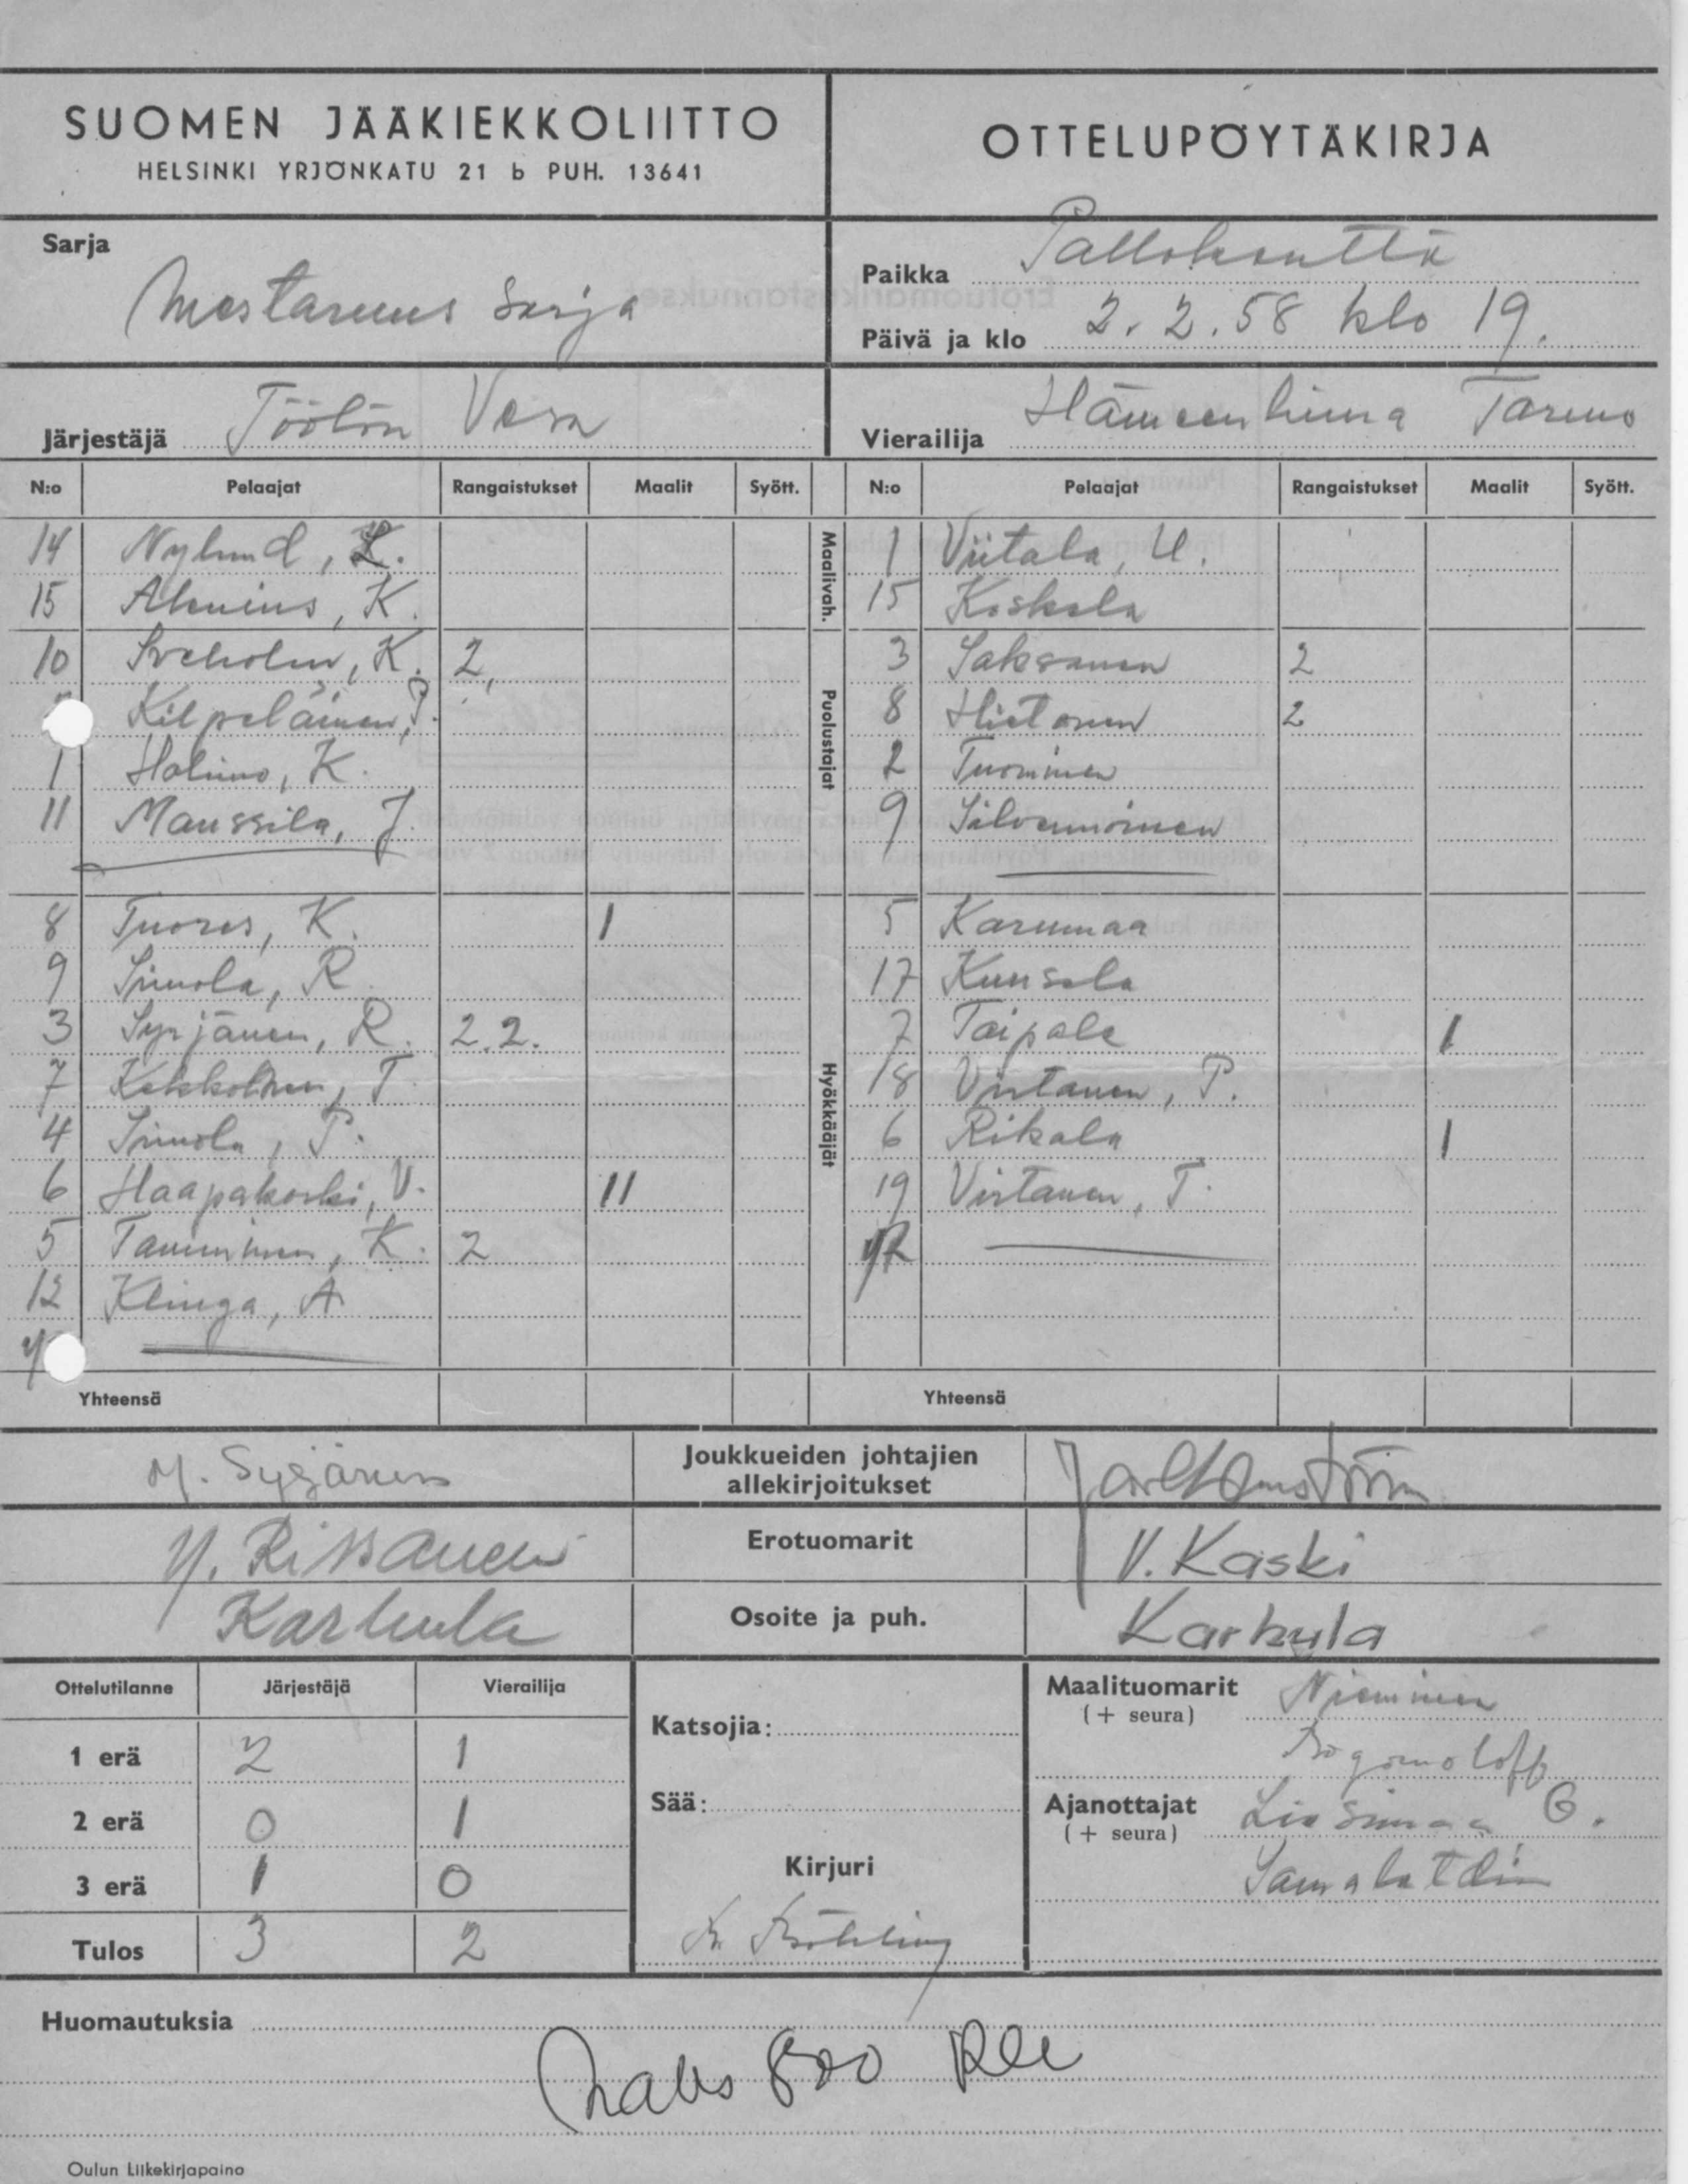 SUOMEN JÄÄKIEKKOLIITTO
HELSINKI YRJÖNKATU 21 b PUH. 13641
OTTELUPÖYTÄKIRJA
Sarja
Mestaruus Sarja
Paikka Pallokenttä
Päivä ja klo 2.2.58 klo 19.
Järjestäjä Töölön Vesa
Vierailija Hämeenlinna Tarmo
N:o Pelaajat Rangaistukset Maalit Syött. N:o Pelaajat Rangaistukset Maalit Syött.
Maalivah.
14 Nylund, L. 1 Viitala, U.
15 Alenius, K. 15 Koskela
Puolustajat
10 Sveholm, K. 2, 3 Saksanen 2
Kilpeläinen, P. 8 Hietanen 2
1 Holimo, K. 2 Tuominen
11 Maussila, J. 9 Silvennoinen
Hyökkääjät
8 Tuores, K. 1 5 Karumaa
9 Simola, R. 17 Kuusela
3 Syrjänen, R. 2.2. 7 Taipale 1
7 Kekkonen, T. 18 Virtanen, P.
4 Simola, P. 6 Rikala 1
6 Haapakoski, V. 11 19 Virtanen, T.
5 Tamminen, K. 2 12
12 Klinga, A
Yhteensä Yhteensä
M. Syrjänen Joukkueiden johtajien
allekirjoitukset
Y. Rissanen Erotuomarit V. Kaski
Karhula Osoite ja puh. Karhula
Ottelutilanne Järjestäjä Vierailija
1 erä 2 1
2 erä 0 1
3 erä 1 0
Tulos 3 2
Katsojia:
Sää:
Kirjuri
Maalituomarit Nieminen
(+ seura)
Bogomoloff
Ajanottajat G.
(+ seura)
Samaletdin
Huomautuksia
Maks 800
Oulun Liikekirjapaino